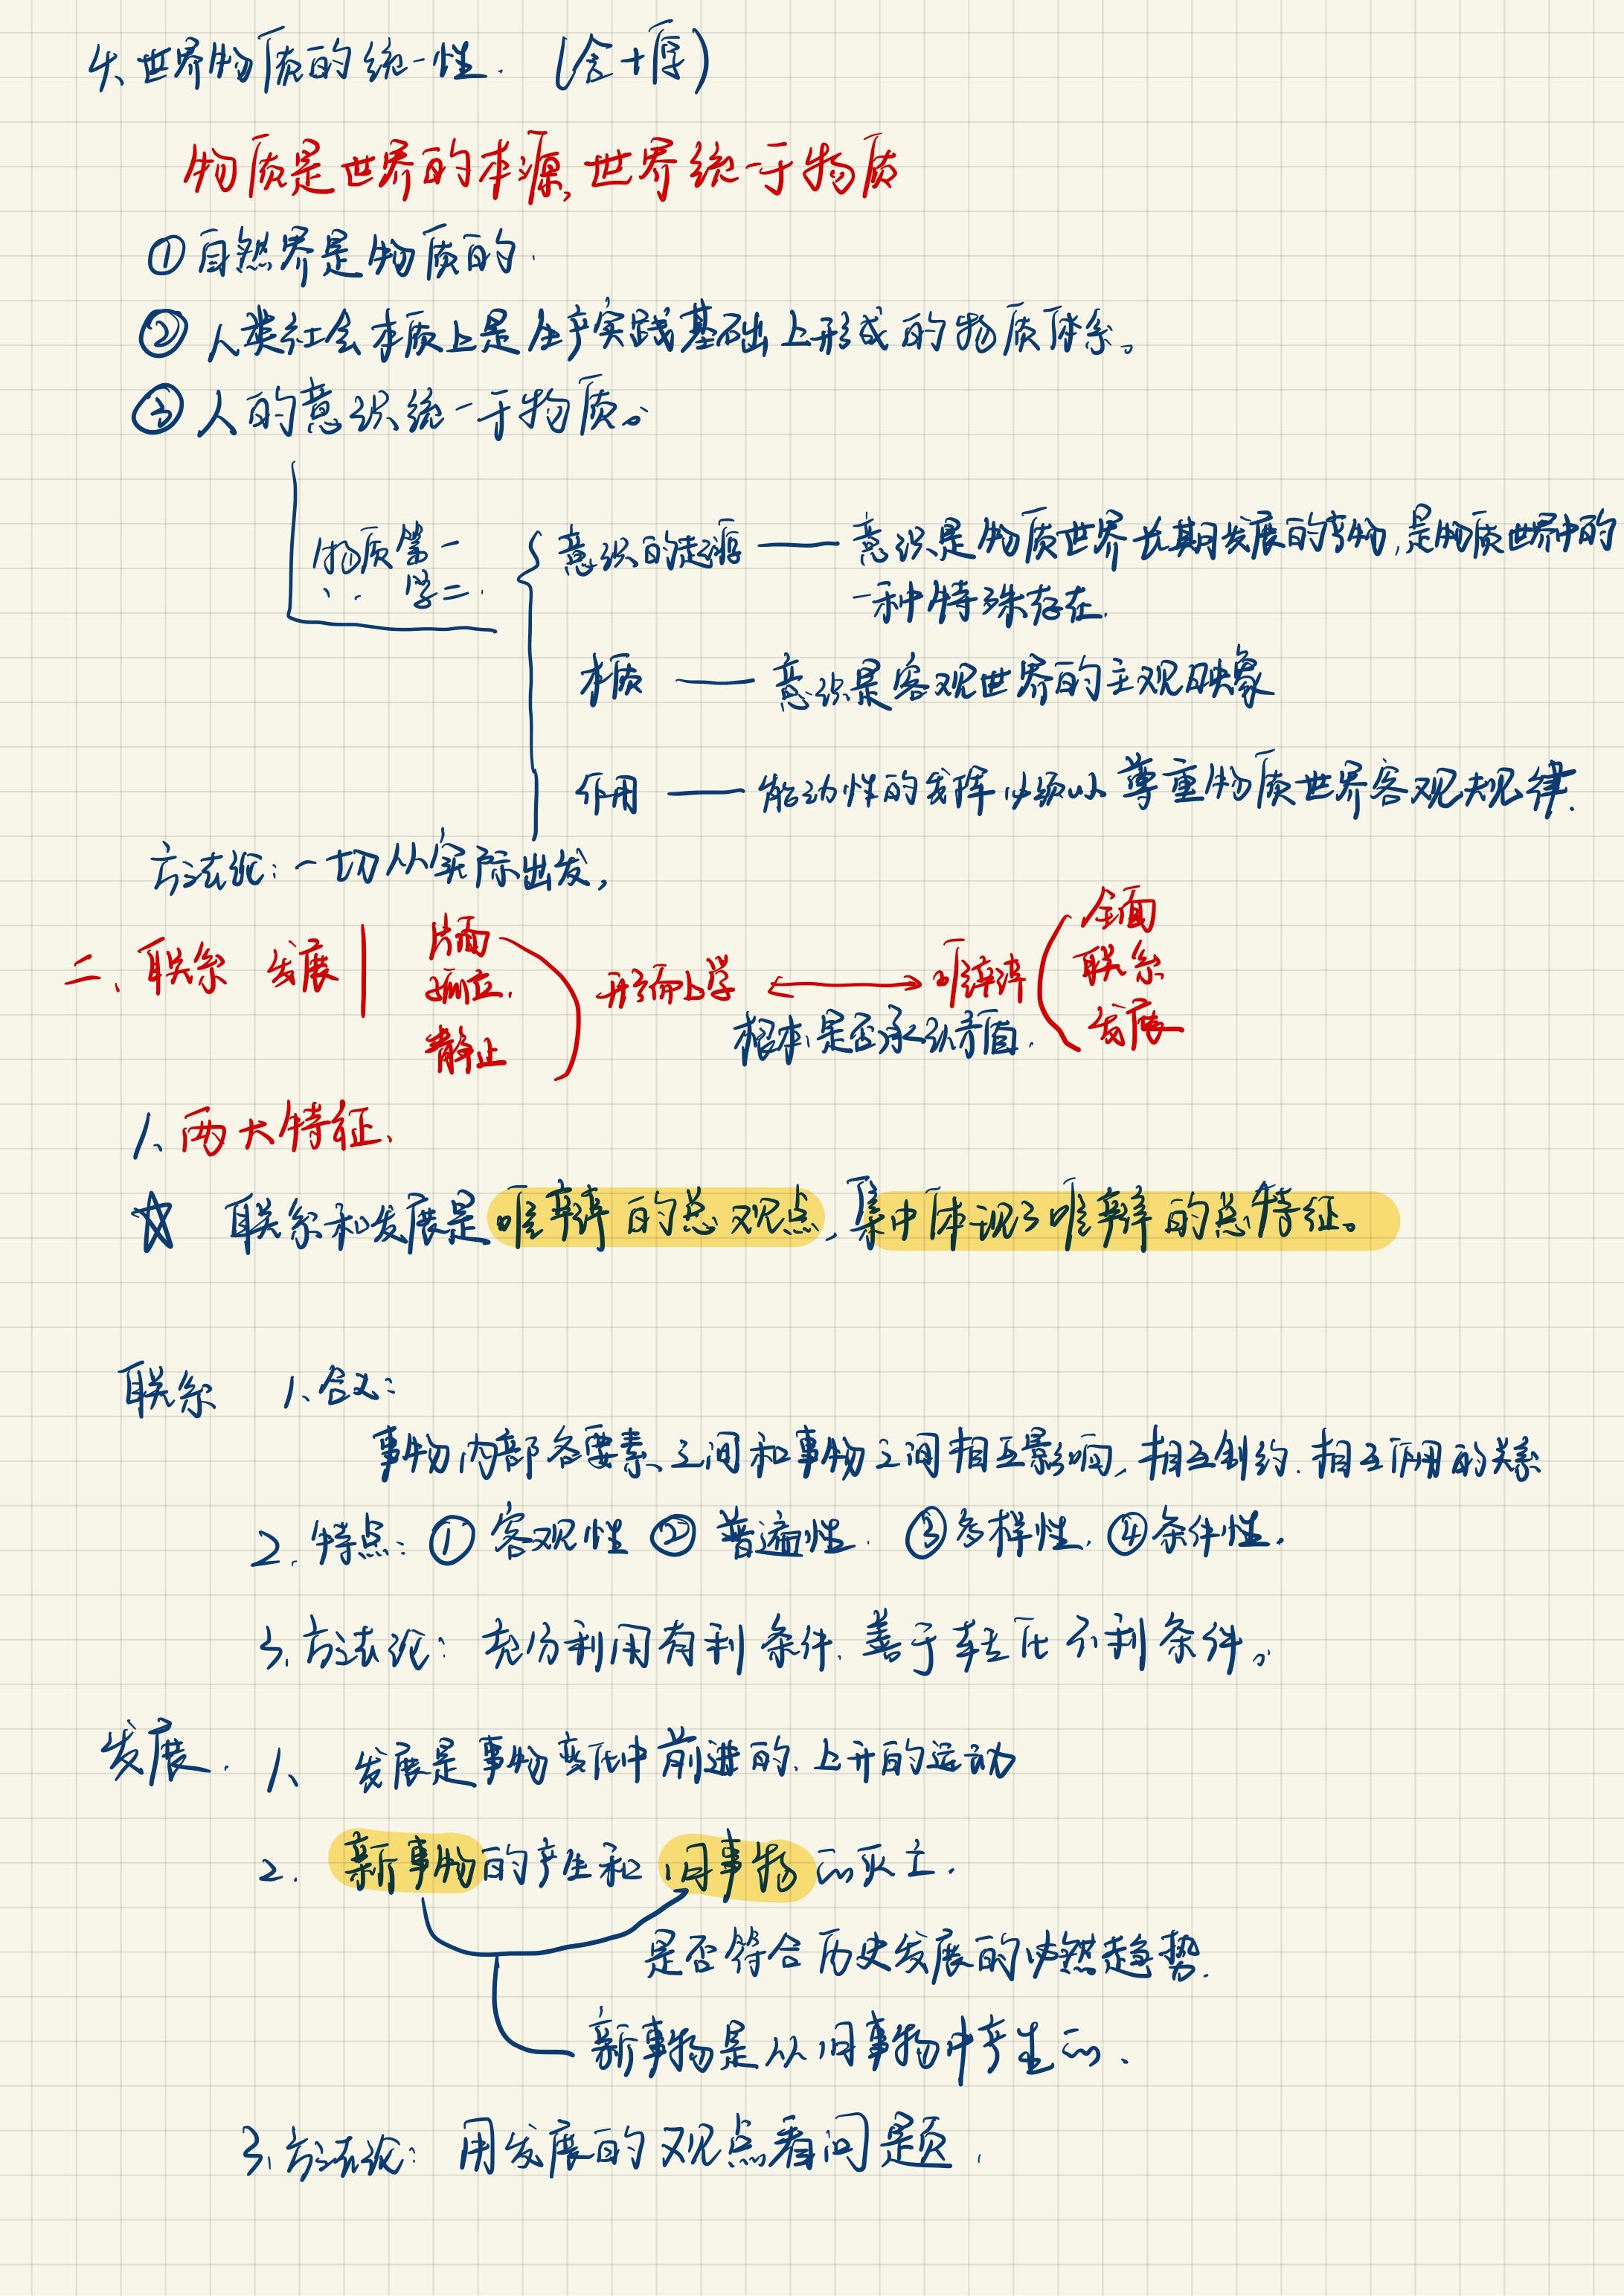 4、世界物质的统一性. (舍+厚)
物质是世界的本源,世界统一于物质
①自然界是物质的.
②人类社会本质上是生产实践基础上形成的物质体系。
③人的意识统一于物质。
物质第一
学二.
意识的起源 — 意识是物质世界长期发展的产物,是物质世界中的
一种特殊存在.
本质 — 意识是客观世界的主观映象
作用 — 能动性的发挥必须以尊重物质世界客观规律.
方法论:一切从实际出发,
二、联系 发展
片面
孤立.
静止
形而上学 ↔ 唯辩
全面
联系
发展
根本:是否承认矛盾.
1、两大特征、
☆ 联系和发展是唯辩的总观点,集中体现了唯辩的总特征。
联系 1、含义:
事物内部各要素、之间和事物之间相互影响,相互制约.相互作用的关系
2.特点:①客观性 ②普遍性. ③多样性.④条件性.
3.方法论:充份利用有利条件.善于转化不利条件。
发展. 1、发展是事物变化中前进的.上升的运动
2. 新事物的产生和旧事物的灭亡.
是否符合历史发展的必然趋势.
新事物是从旧事物中产生的、
3.方法论:用发展的观点看问题.